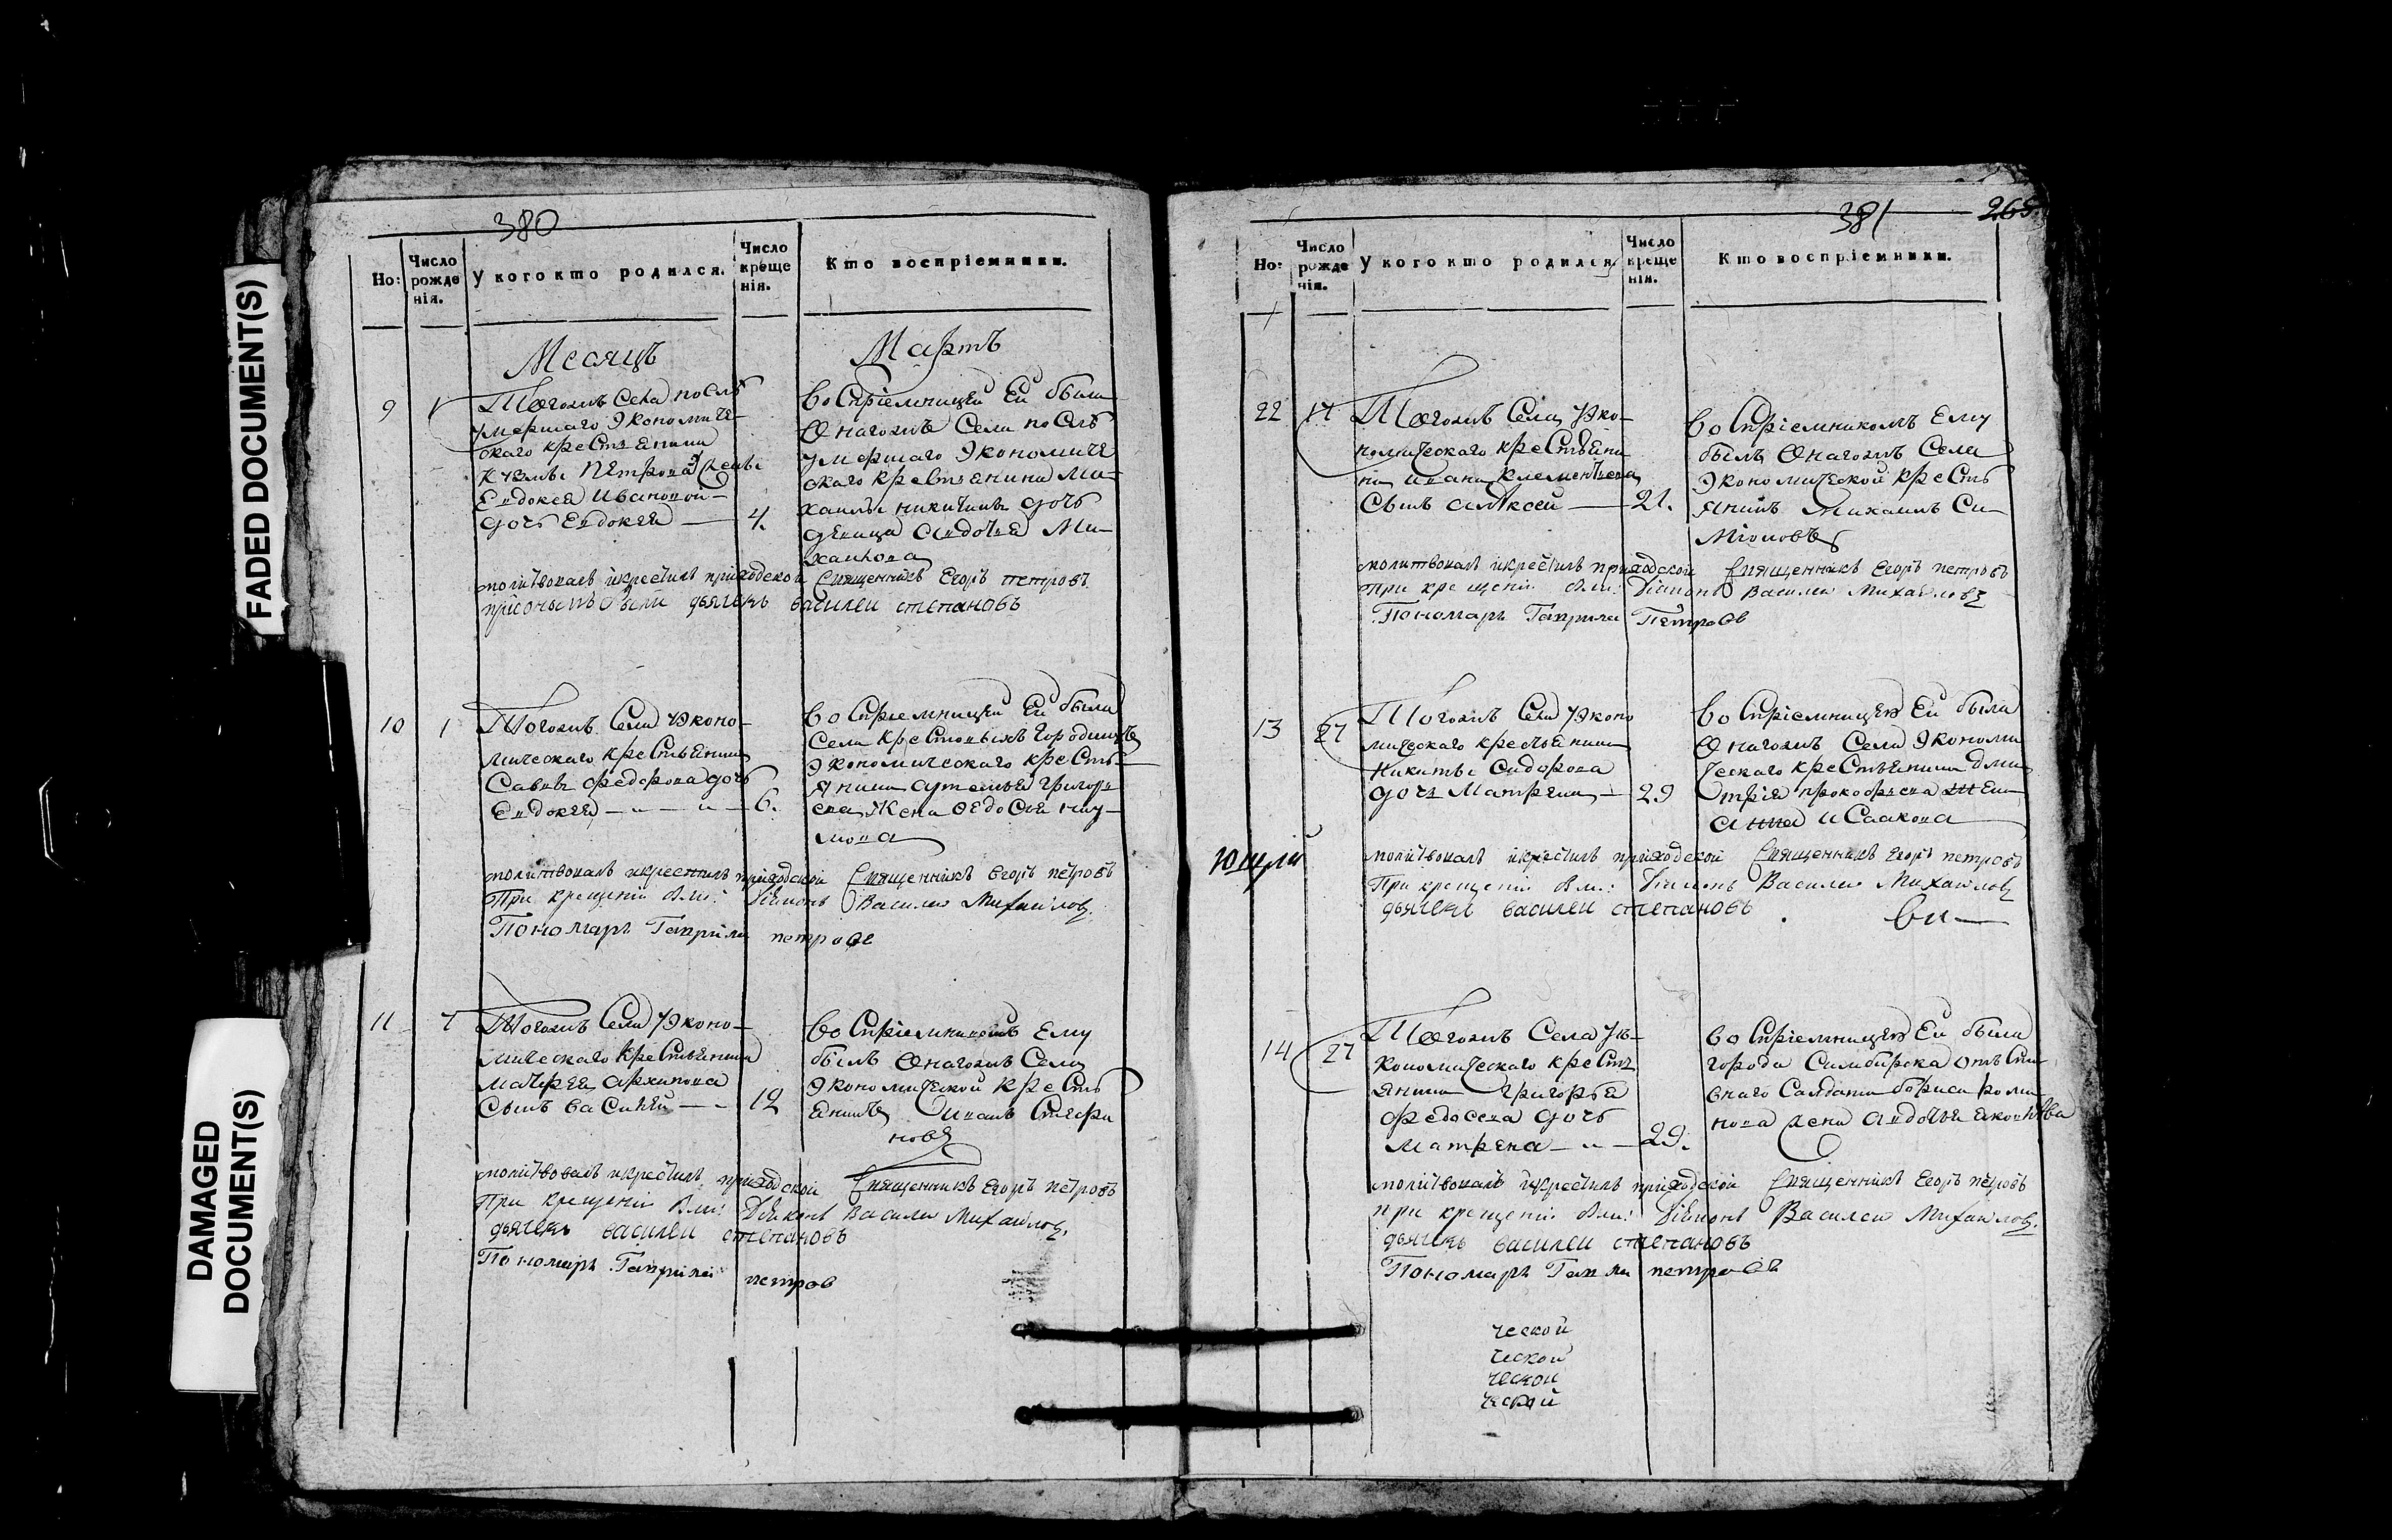 FADED DOCUMENT(S)
DAMAGED
DOCUMENT(S)
380
Но:
Число рожде нія.
У кого кто родился.
Число креще нія.
Кто воспріемники.
Месяцъ
Мартъ
9
1
Тогожъ Села послѣ
умершаго Экономиче-
скаго крестьянина
Петрова жены
Евдокеи Ивановой
дочь Евдокея
4.
Воспріемницей Ей была
Онагожъ Села послѣ
умершаго Экономиче
скаго крестьянина Ми-
хаилы никитина дочь
девица Авдотья Ми-
хайлова
молитвовалъ и крестилъ приходской Священникъ Егоръ петровъ
при ономъ были дьячекъ василеи степановъ
10
1
Тогожъ Села Эконо-
мическаго крестьянина
Савы федорова дочь
Евдокея
6.
воспріемницей Ей была
Села крестовыхъ Городищь
Экономическаго кресть-
янина артемья григорь
ева Жена Федосья нау-
мова
молитвовалъ и крестилъ приходской Священникъ Егоръ петровъ
При крещеніи были: Діяконъ Василеи Михайловъ
Пономарь Гаврила петровъ
11
7
Тогожъ Села Эконо-
мическаго крестьянина
архипова
Сынъ Василей
12
воспріемникомъ Ему
былъ Онагожъ Села
Экономической кресть
янинъ
новъ
молитвовалъ и крестилъ приходской Священникъ Егоръ петровъ
При крещеніи были: Діяконъ Василеи Михайловъ
дьячекъ василеи степановъ
Пономарь Гаврила петров
381
265
Но:
Число рожде нія.
У кого кто родился
Число креще нія.
Кто воспріемники.
22
17
Тогожъ Села Эко-
номическаго крестьяни
на ивана клементьева
Сынъ алексей
21.
воспріемникомъ Ему
былъ Онагожъ Села
Экономической кресть
янинъ Михаилъ Си-
мионовъ
молитвовалъ и крестилъ приходской Священникъ Егоръ петровъ
При крещеніи были: Діяконъ Василеи Михайловъ
Пономарь Гаврила Петров
13
27
Тогожъ Села Эконо
мическаго крестьянина
Никиты Сидорова
дочь Матрена
29
воспріемницею Ей была
Онагожъ Села Экономи
ческаго крестьянина дми
трія прокофьева жена
анна исаакова
молитвовалъ и крестилъ приходской Священникъ Егоръ петровъ
При крещеніи были: Діяконъ Василеи Михайловъ
дьячекъ василеи степановъ
14
27
Тогожъ Села Эк-
кономическаго кресть
янина григорья
федосеева дочь
Матрена
29.
воспріемницею Ей была
города Симбирска отъста
внаго Салдата бориса рома
нова жена авдотья яковлева
молитвовалъ и крестилъ приходской Священникъ Егоръ петровъ
при крещеніи были: Діяконъ Василеи Михайловъ.
дьячекъ василеи степановъ
Пономарь петровъ
ческой
ческой
ческой
ческой